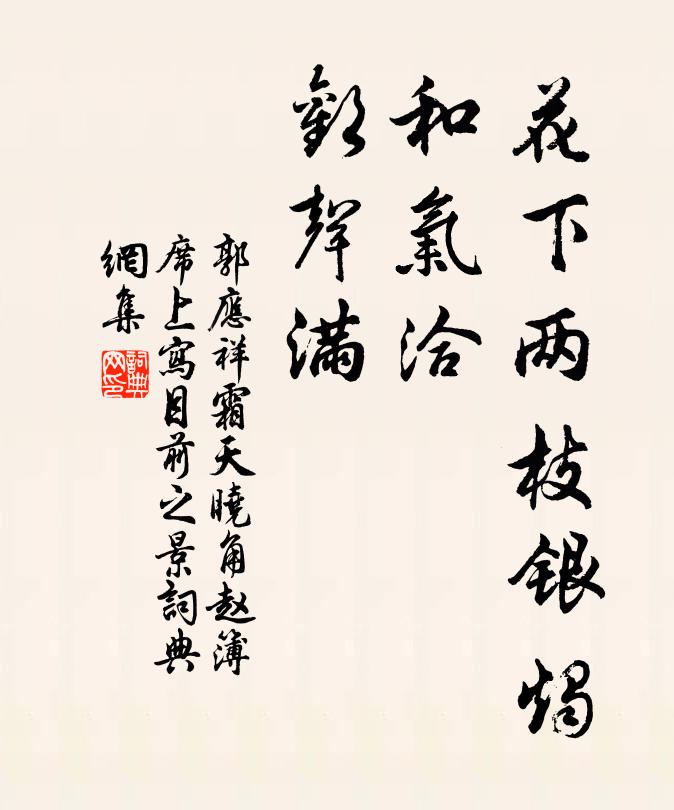 花下两枝銀燭
和氣洽
歡聲满
郭應祥霜天曉角赵簿
席上寫目前之景詞典
網集
詞典
网印